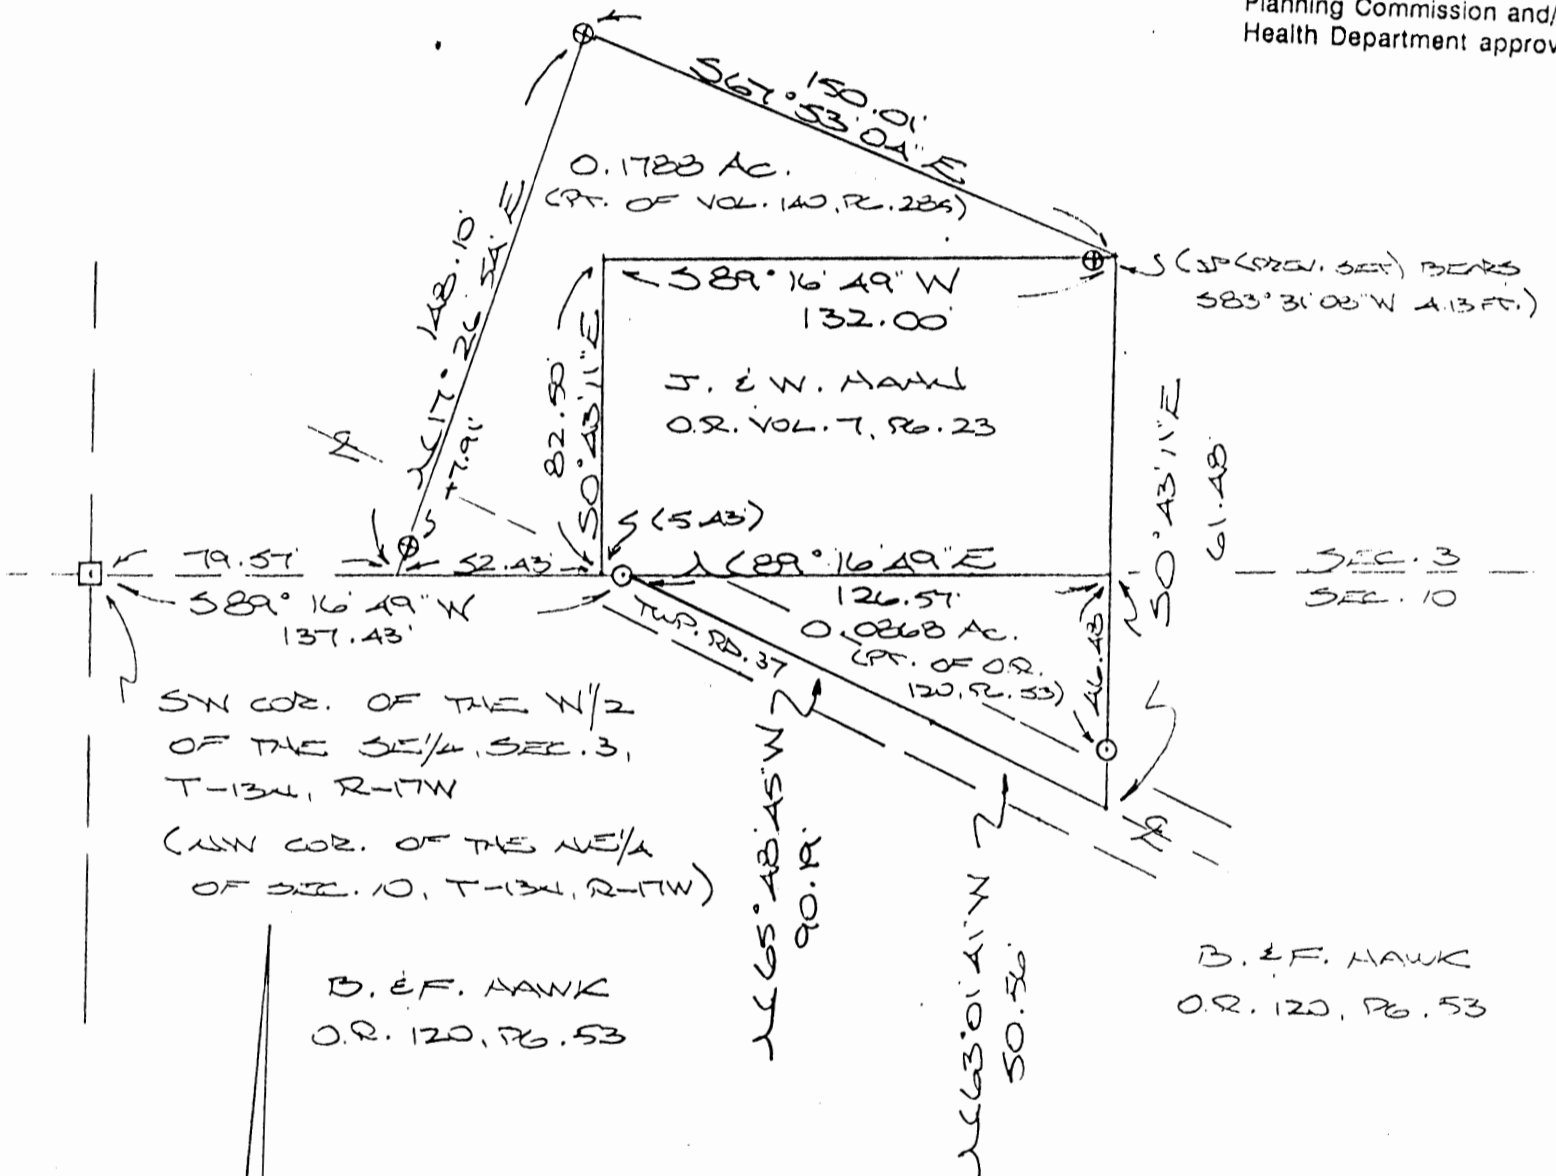 Planning Commission and/
Health Department approv
150.01'
S67°53'04"E
0.1788 AC.
(PT. OF VOL. 140, PG. 235)
148.10'
N17°26'54"E
+7.91'
S89°16'49"W
132.00'
(IP (PREV. SET) BEARS
S83°31'08"W 4.13 FT.)
82.50'
S0°43'11"E
J. & W. HAHN
O.R. VOL. 7, PG. 23
S0°43'11"E
61.48'
(5.43')
79.57'
52.43'
N89°16'49"E
126.57'
SEC. 3
SEC. 10
S89°16'49"W
137.43'
TWP. RD. 37
0.0868 AC.
(PT. OF O.R.
120, PG. 53)
46.48'
SW COR. OF THE W1/2
OF THE SE1/4, SEC. 3,
T-13N, R-17W
(NW COR. OF THE NE1/4
OF SEC. 10, T-13N, R-17W)
N65°48'45"W
90.19'
N63°01'41"W
50.56'
B. & F. HAWK
O.R. 120, PG. 53
B. & F. HAWK
O.R. 120, PG. 53